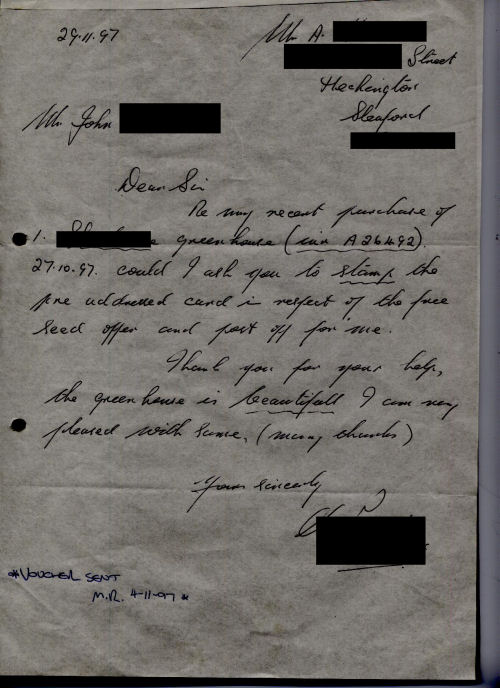 29.11.97
Mr A.
Street
Heckington
Sleaford
Mr John
Dear Sir
Re my recent purchase of
1. greenhouse (inv A26492).
27.10.97. could I ask you to stamp the
pre addressed card in respect of the free
seed offer and post off for me.
Thank you for your help,
the greenhouse is beautifull I am very
pleased with same, (many thanks)
Yours sincerely
*VOUCHER SENT
M.R. 4-11-97 *